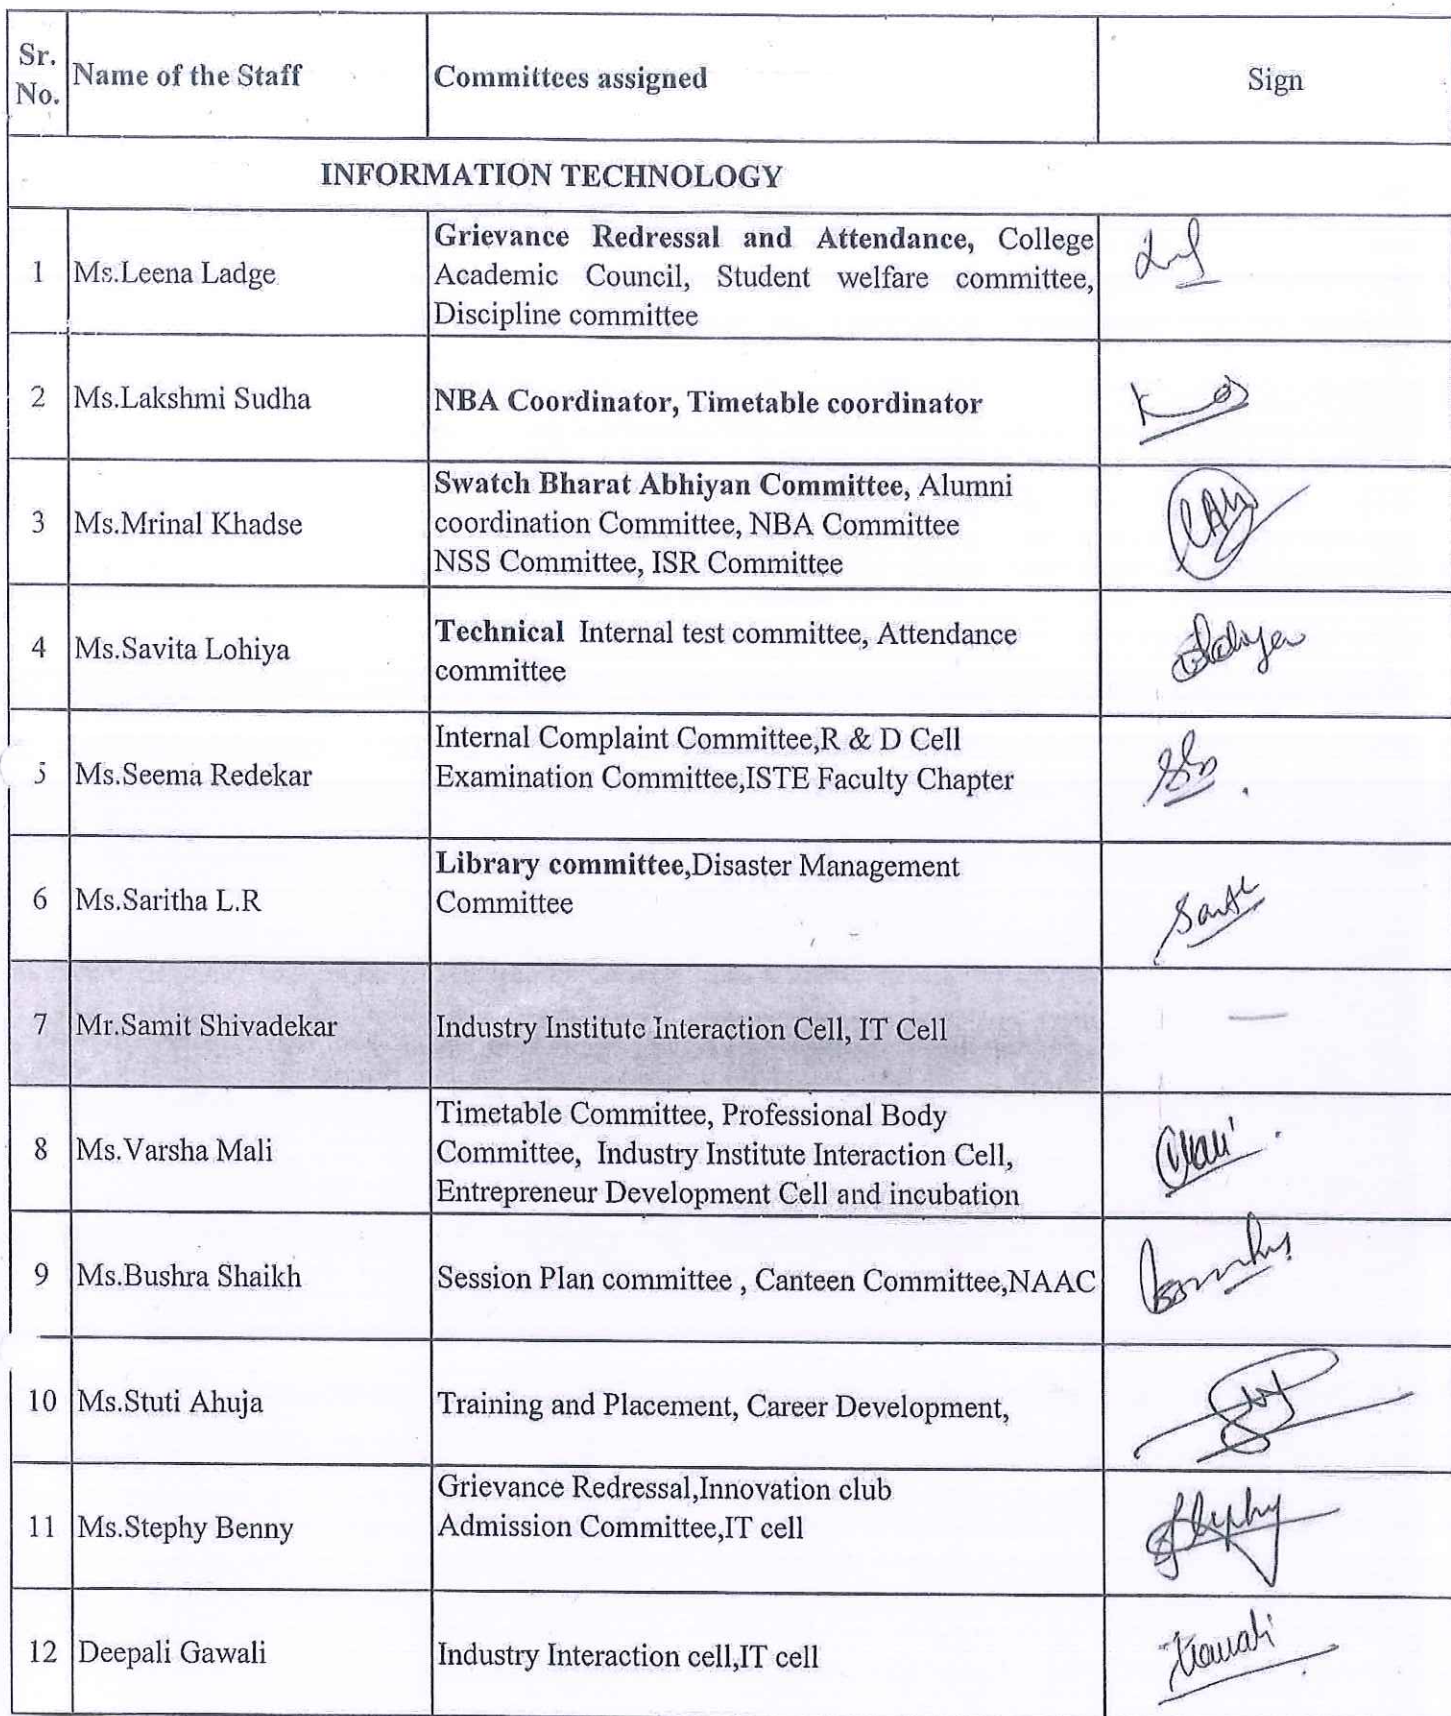 Sr. No. Name of the Staff Committees assigned Sign
INFORMATION TECHNOLOGY
1 Ms.Leena Ladge
Grievance Redressal and Attendance, College
Academic Council, Student welfare committee,
Discipline committee
2 Ms.Lakshmi Sudha
NBA Coordinator, Timetable coordinator
3 Ms.Mrinal Khadse
Swatch Bharat Abhiyan Committee, Alumni
coordination Committee, NBA Committee
NSS Committee, ISR Committee
4 Ms.Savita Lohiya
Technical Internal test committee, Attendance
committee
5 Ms.Seema Redekar
Internal Complaint Committee,R & D Cell
Examination Committee,ISTE Faculty Chapter
6 Ms.Saritha L.R
Library committee,Disaster Management
Committee
7 Mr.Samit Shivadekar
Industry Institute Interaction Cell, IT Cell
—
8 Ms.Varsha Mali
Timetable Committee, Professional Body
Committee, Industry Institute Interaction Cell,
Entrepreneur Development Cell and incubation
9 Ms.Bushra Shaikh
Session Plan committee , Canteen Committee,NAAC
10 Ms.Stuti Ahuja
Training and Placement, Career Development,
11 Ms.Stephy Benny
Grievance Redressal,Innovation club
Admission Committee,IT cell
Stephy
12 Deepali Gawali
Industry Interaction cell,IT cell